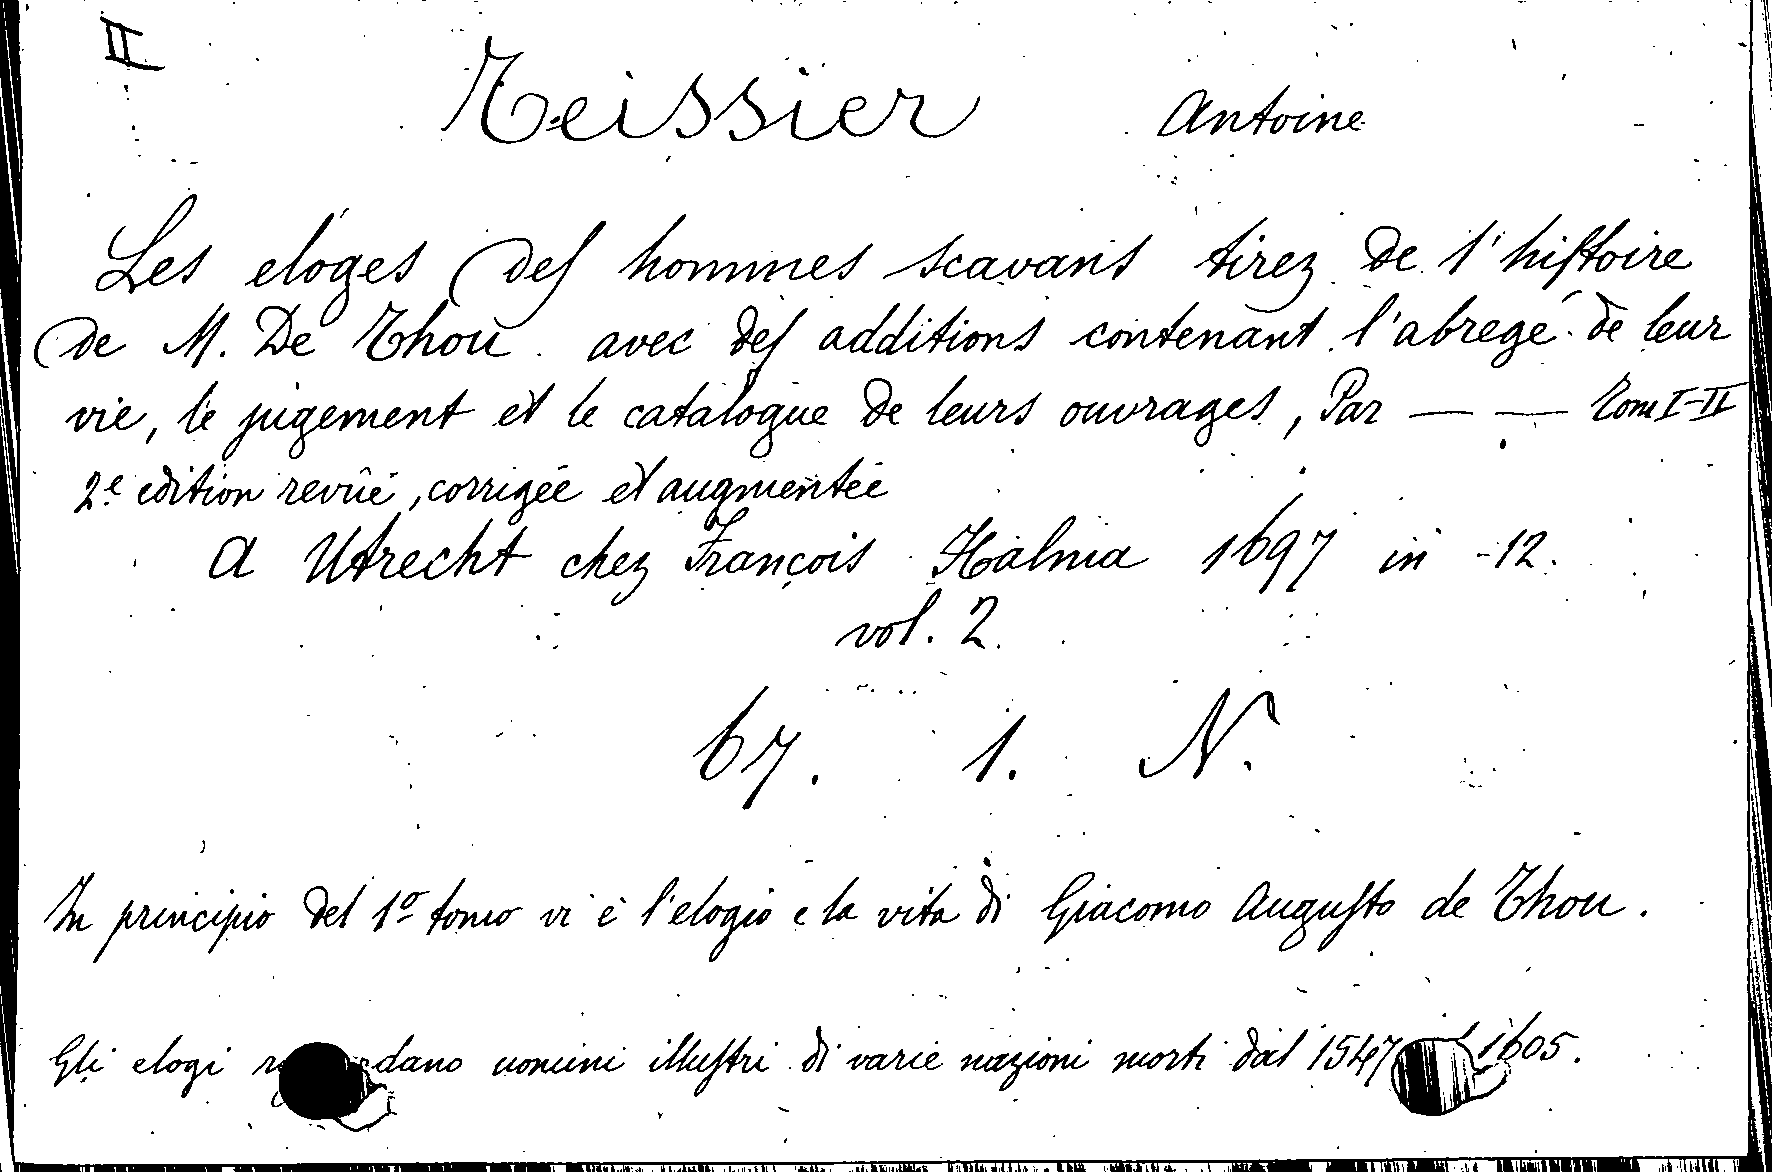 II
Teissier Antoine
Les eloges des hommes scavans tirez de l'histoire
de M. De Thou avec des additions contenant l'abregé de leur
vie, le jugement et le catalogue de leurs ouvrages, Par — — Tom I-II
2e edition revûe, corrigée et augmentée
A Utrecht chez François Halma 1697 in -12.
vol. 2.
67. 1. N.
In principio del 1º tomo vi è l'elogio e la vita di Giacomo Augusto de Thou.
Gli elogi uomini illustri di varie nazioni morti dal 1547 1605.